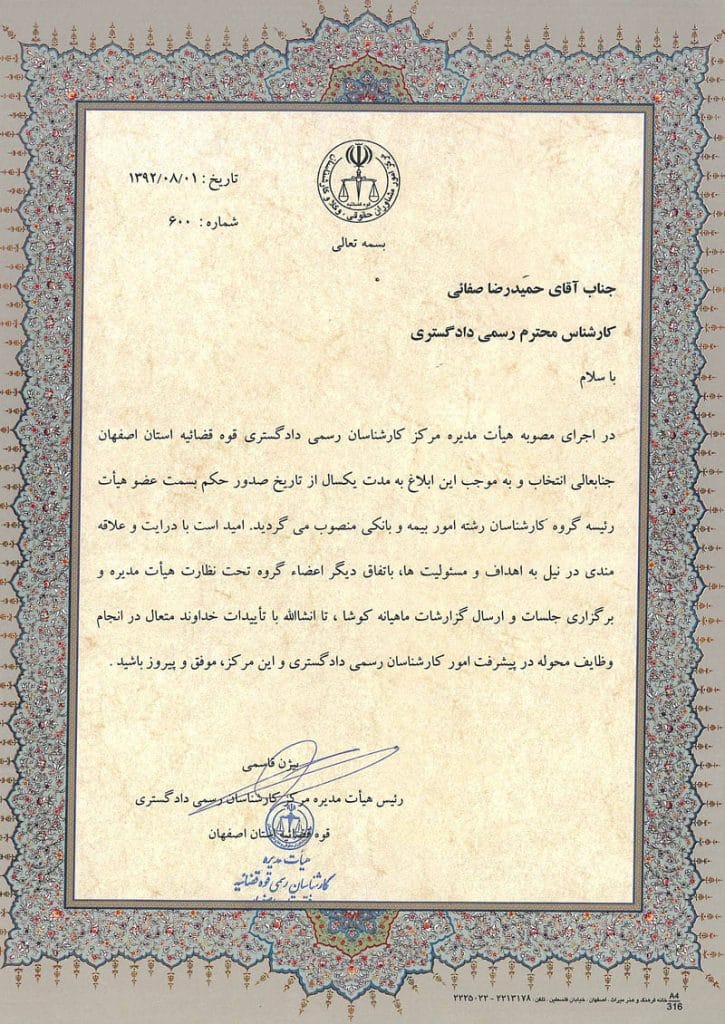 مرکز امور مشاوران حقوقی، وکلا و کارشناسان
قوه قضائیه
تاریخ : ۱۳۹۲/۰۸/۰۱
شماره : ۶۰۰
بسمه تعالی
جناب آقای حمیدرضا صفائی
کارشناس محترم رسمی دادگستری
با سلام
در اجرای مصوبه هیأت مدیره مرکز کارشناسان رسمی دادگستری قوه قضائیه استان اصفهان
جنابعالی انتخاب و به موجب این ابلاغ به مدت یکسال از تاریخ صدور حکم بسمت عضو هیأت
رئیسه گروه کارشناسان رشته امور بیمه و بانکی منصوب می گردید. امید است با درایت و علاقه
مندی در نیل به اهداف و مسئولیت ها، باتفاق دیگر اعضاء گروه تحت نظارت هیأت مدیره و
برگزاری جلسات و ارسال گزارشات ماهیانه کوشا ، تا انشاالله با تأییدات خداوند متعال در انجام
وظایف محوله در پیشرفت امور کارشناسان رسمی دادگستری و این مرکز، موفق و پیروز باشید .
بیژن قاسمی
رئیس هیأت مدیره مرکز کارشناسان رسمی دادگستری
قوه قضائیه استان اصفهان
هیأت مدیره
کارشناسان رسمی قوه قضائیه
A4
316
خانه فرهنگ و هنر میراث ، اصفهان ، خیابان فلسطین ، تلفن : ۲۲۱۳۱۷۸ - ۲۲۲۵۰۲۲